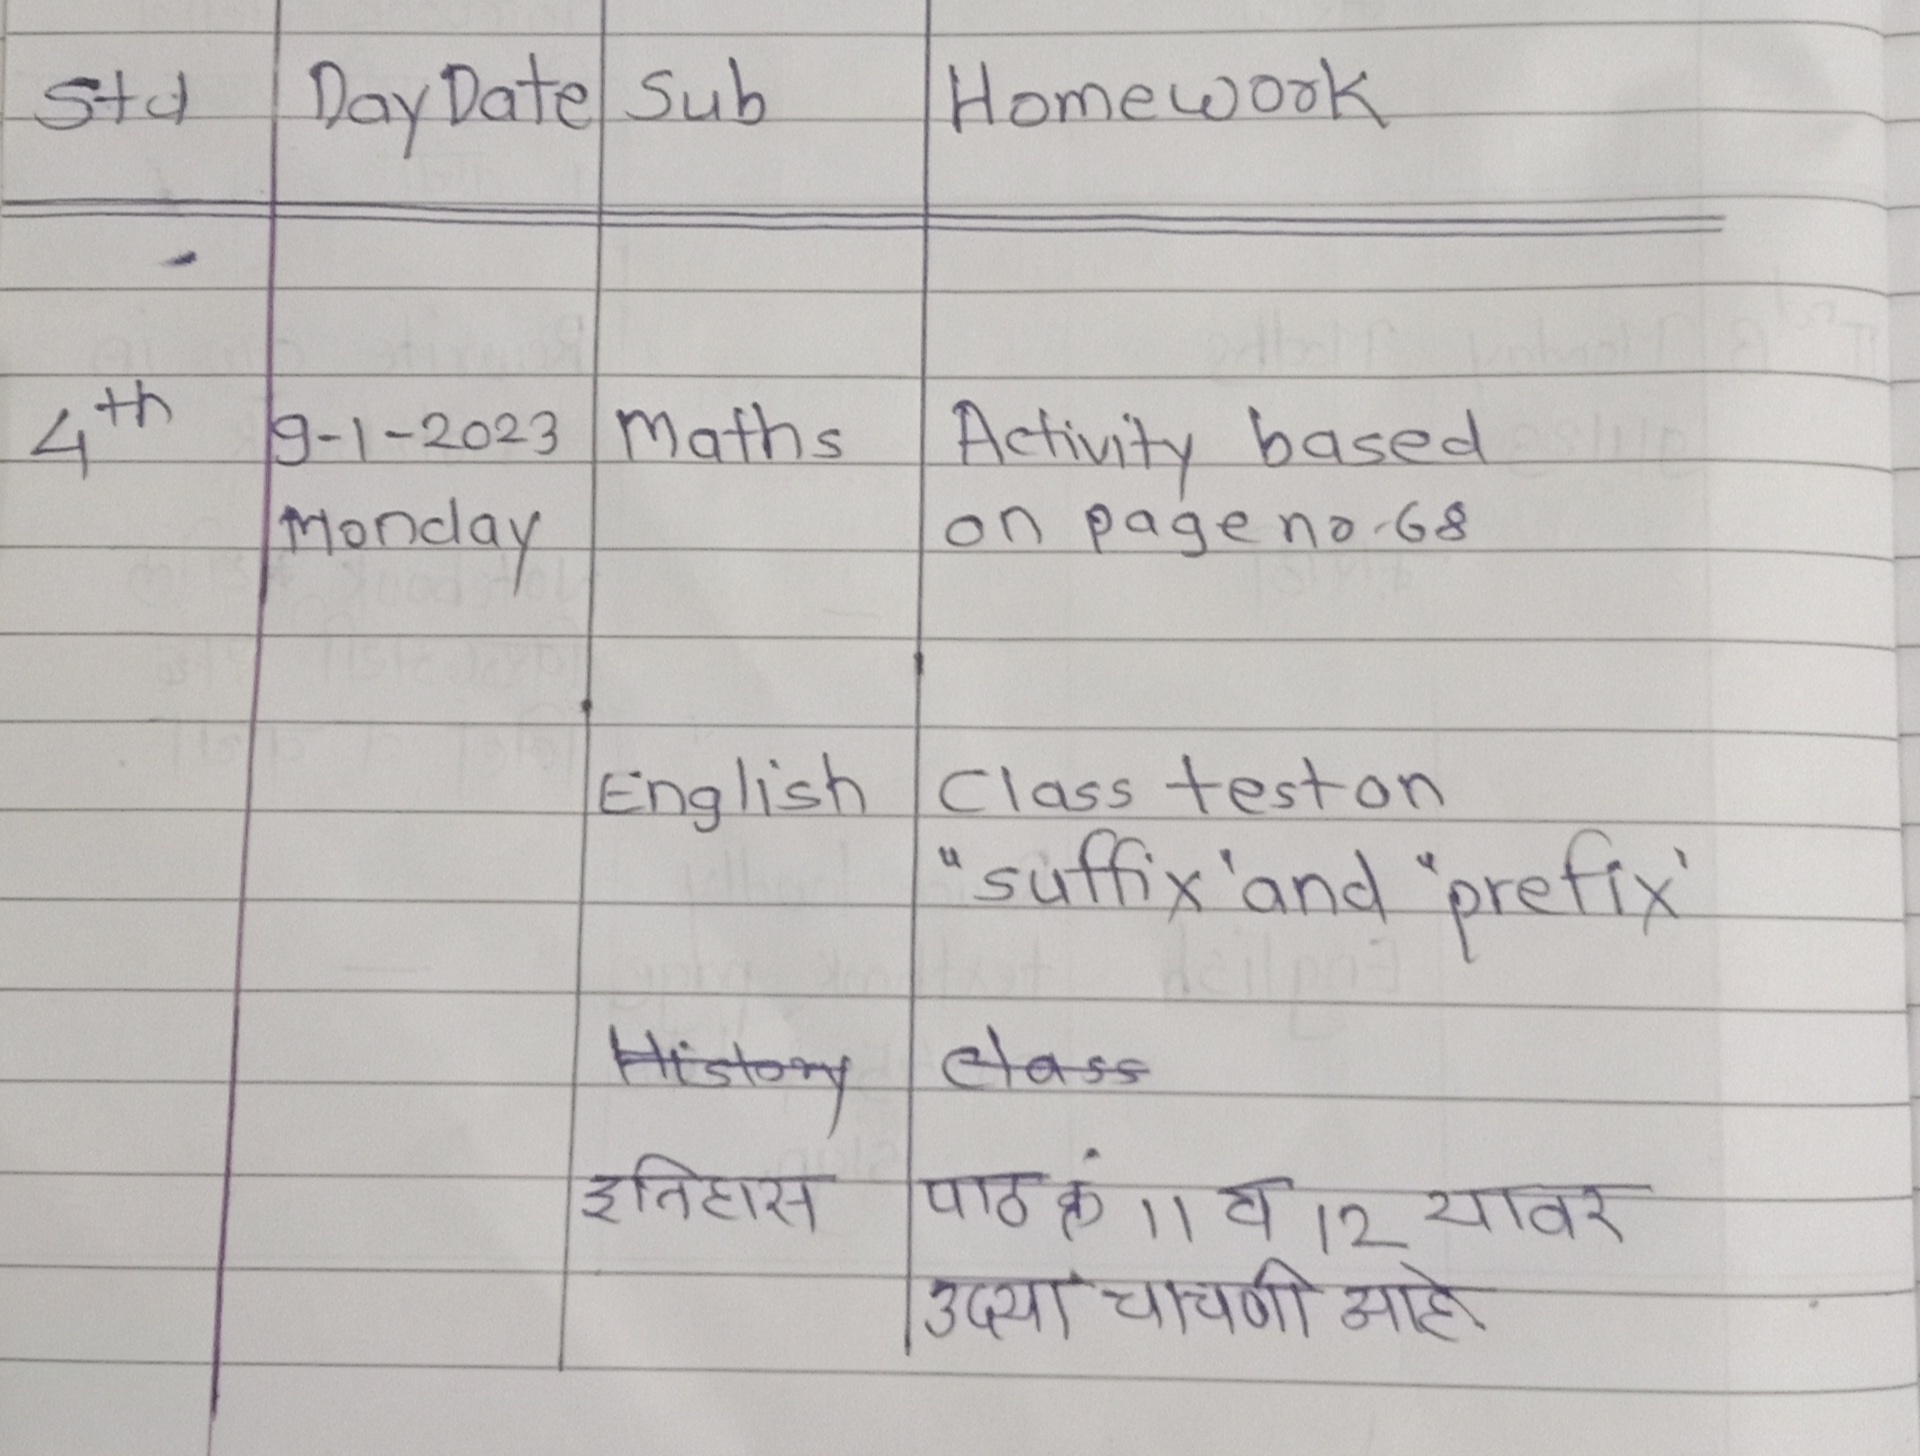 Std Day Date Sub Homework
4th 9-1-2023 Maths Activity based
Monday on page no. 68
English Class test on
"suffix' and "prefix'
History class
इतिहास पाठ क्रं 11 व 12 यावर
उदया चाचणी आहे.